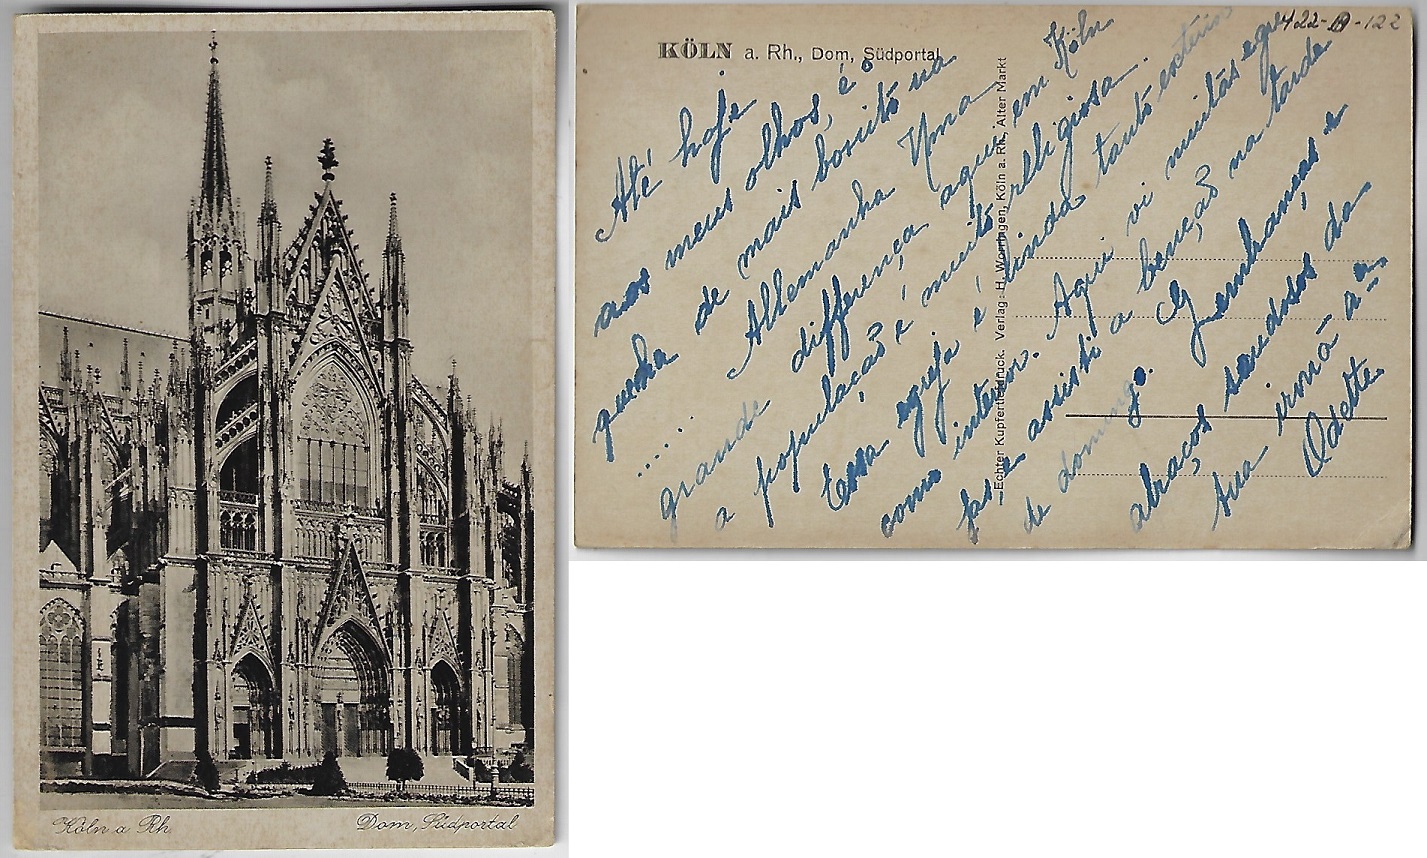 Köln a Rh.
Dom, Südportal
422-B-122
KÖLN a. Rh., Dom, Südportal
Echter Kupfertiefdruck. Verlag: H. Worringen, Köln a. Rh., Alter Markt
Até hoje
aos meus olhos, é o
que ha de mais bonito na
..... Allemanha Uma
grande differença aqui em Köln
a populaçaõ é muito relligiosa.
Essa egreja é linda tanto exterior
como interior. Aqui vi muitas egre
jas e assisti a bençaõ na tarde
de domingo.
Lembranças e
abraços saudosos da
tua irmã
Odette.